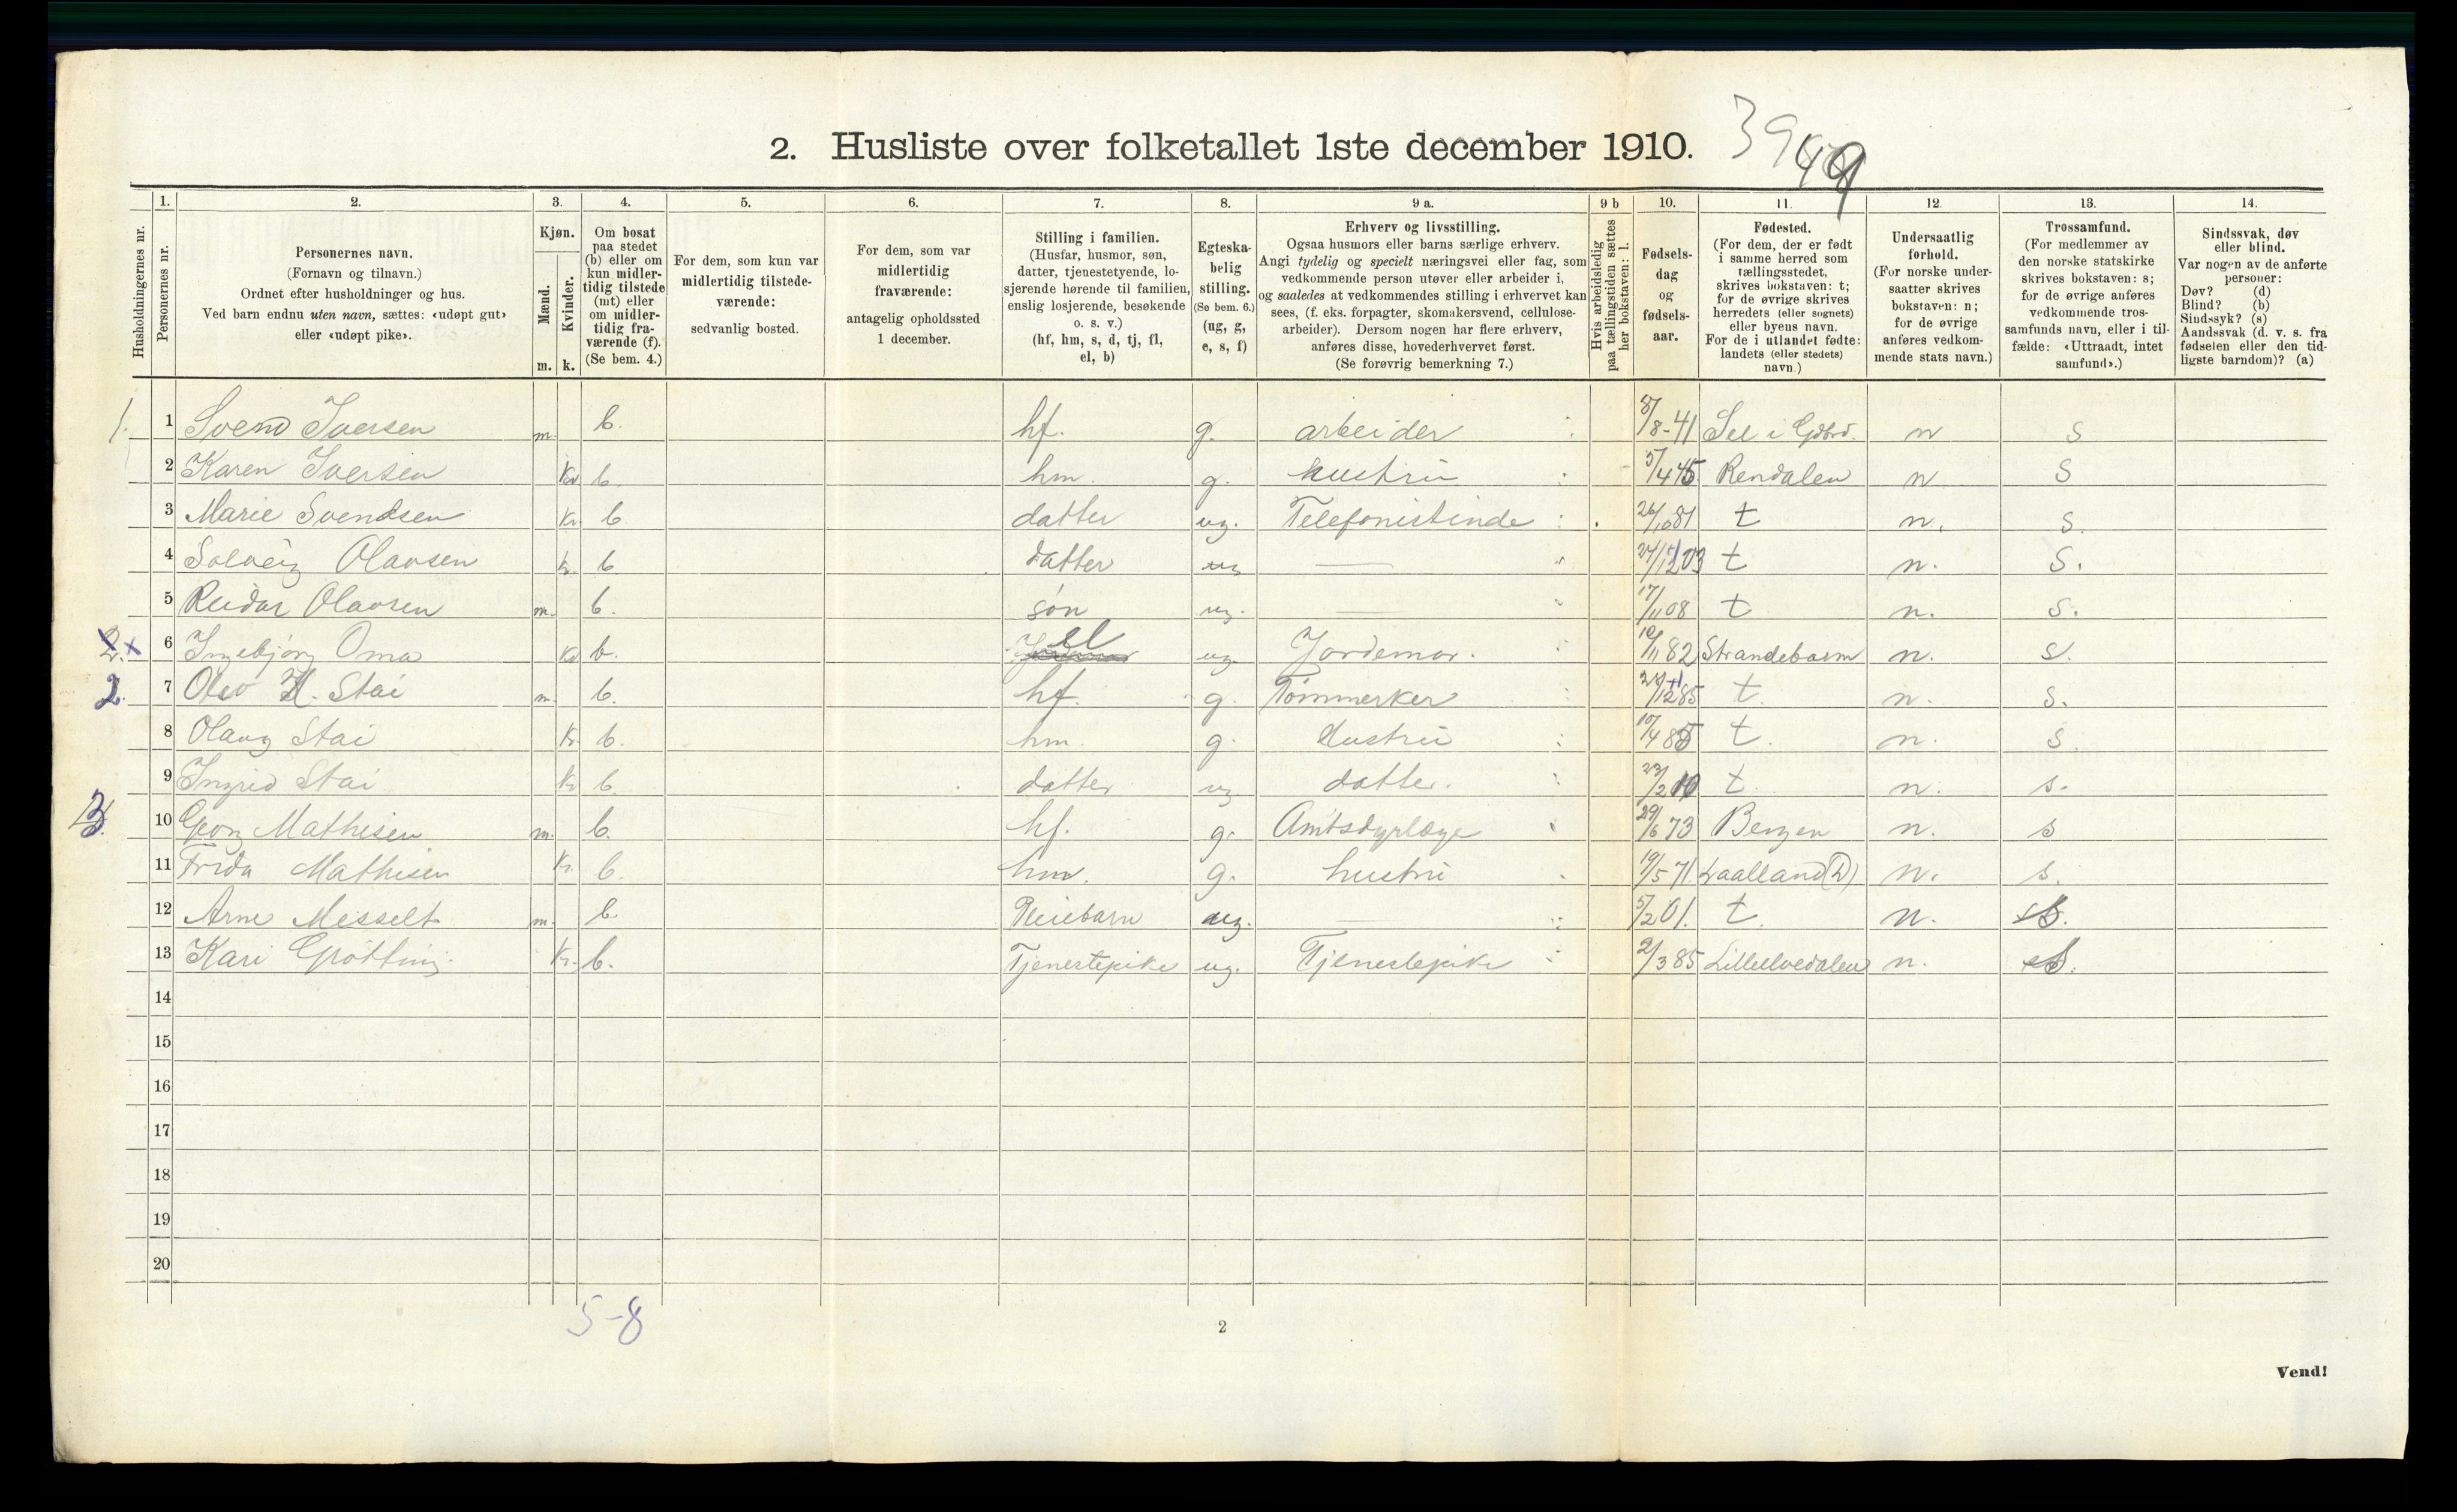 3949
2. Husliste over folketallet 1ste december 1910.
Husholdningernes nr.
1. Personernes nr.
2. Personernes navn. (Fornavn og tilnavn.) Ordnet efter husholdninger og hus. Ved barn endnu uten navn, sættes: «udøpt gut» eller «udøpt pike».
3. Kjøn. Mænd. m. Kvinder. k.
4. Om bosat paa stedet (b) eller om kun midlertidig tilstede (mt) eller om midlertidig fraværende (f). (Se bem. 4.)
5. For dem, som kun var midlertidig tilstedeværende: sedvanlig bosted.
6. For dem, som var midlertidig fraværende: antagelig opholdssted 1 december.
7. Stilling i familien. (Husfar, husmor, søn, datter, tjenestetyende, losjerende hørende til familien, enslig losjerende, besøkende o. s. v.) (hf, hm, s, d, tj, fl, el, b)
8. Egteskabelig stilling. (Se bem. 6.) (ug, g, e, s, f)
9 a. Erhverv og livsstilling. Ogsaa husmors eller barns særlige erhverv. Angi tydelig og specielt næringsvei eller fag, som vedkommende person utøver eller arbeider i, og saaledes at vedkommendes stilling i erhvervet kan sees, (f. eks. forpagter, skomakersvend, cellulosearbeider). Dersom nogen har flere erhverv, anføres disse, hovederhvervet først. (Se forøvrig bemerkning 7.)
9 b Hvis arbeidsledig paa tællingstiden sættes her bokstaven: l.
10. Fødselsdag og fødselsaar.
11. Fødested. (For dem, der er født i samme herred som tællingsstedet, skrives bokstaven: t; for de øvrige skrives herredets (eller sognets) eller byens navn. For de i utlandet fødte: landets (eller stedets) navn.)
12. Undersaatlig forhold. (For norske undersaatter skrives bokstaven: n; for de øvrige anføres vedkommende stats navn.)
13. Trossamfund. (For medlemmer av den norske statskirke skrives bokstaven: s; for de øvrige anføres vedkommende trossamfunds navn, eller i tilfælde: «Uttraadt, intet samfund».)
14. Sindssvak, døv eller blind. Var nogen av de anførte personer: Døv? (d) Blind? (b) Sindssyk? (s) Aandssvak (d. v. s. fra fødselen eller den tidligste barndom)? (a)
1. 1 Svend Iversen m. b. hf. g. arbeider 8/8-41 Sel i Gdbrd. n s
2 Karen Iversen Kv b. hm. g. hustru 5/4 45 Rendalen n s
3 Marie Svendsen Kv b. datter ug. Telefonistinde 26/10 81 t n. s.
4 Solveig Olavsen Kv. b. datter ug — 24/12 03 t n. s.
5 Reidar Olavsen m. b. søn ug. — 17/11 08 t n. s.
2. x 6 Ingebjørg Oma Kv b. el ug. Jordemor. 10/11 82 Strandebarm n. s.
2. 7 Olav H. Stai m. b. hf. g. Tømmerker 24/12 85 t. n. s.
8 Olaug Stai Kv. b. hm. g. Hustru 10/4 85 t. n. s.
9 Ingrid Stai Kv b. datter ug datter. 23/2 10 t. n. s.
3. 10 Georg Mathisen m. b. hf. g. Amtsdyrlæge 29/6 73 Bergen n. s
11 Frida Mathisen Kv. b. hm. g. hustru 19/5 71. Laalland (D) n. s.
12 Arne Messelt m. b. Pleiebarn ug. — 5/2 01. t. n. s.
13 Kari Grøtting Kv. b. Tjenestepike ug. Tjenestepike 2/3 85 Lilleelvedalen n. s.
14
15
16
17
18
19
20
5-8
2
Vend!